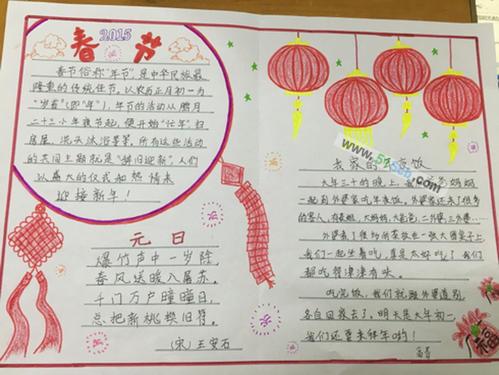 2015
春 节
春节俗称"年节",是中华民族最
隆重的传统佳节,以农历正月初一为
"岁首"(即"年"),年节的活动从腊月
二十三小年夜节起,便开始"忙年":扫
房屋、洗头沐浴等等,所有这些活动
的共同主题就是"辞旧迎新",人们
以盛大的仪式和热情来
迎接新年!
元 日
爆竹声中一岁除
春风送暖入屠苏.
千门万户曈曈日,
总把新桃换旧符.
(宋)王安石
我家的年夜饭
大年三十的晚上,我 爸妈妈
一起到外婆家吃年夜饭,外婆家还来了很多
的客人,有
我们一起坐着吃,真是太好吃了!我们
都吃得津津有味。
吃完饭,我们就跟外婆道别,
各自回家去了,明天是大年初一,
我们还要来拜年哟!
福